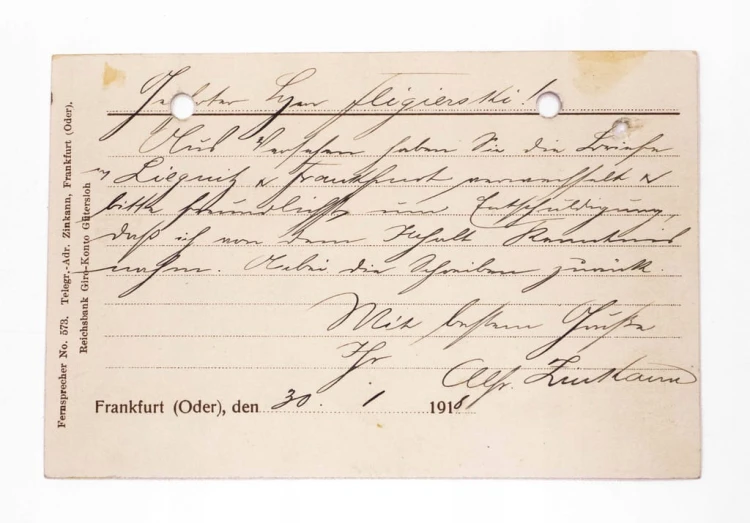 Geehrter Herr Fligierski!
Aus Versehen haben Sie die Briefe
Liegnitz & Frankfurt verwechselt &
bitte freundlichst um Entschuldigung,
daß ich von dem Inhalt Kenntnis
nahm. Anbei die Schreiben zurück.
Mit bestem Gruße
Ihr
Alfr. Zinkann
Frankfurt (Oder), den 30. 1 1918
Fernsprecher No. 573. Telegr.-Adr. Zinkann, Frankfurt (Oder).
Reichsbank Giro-Konto Gütersloh